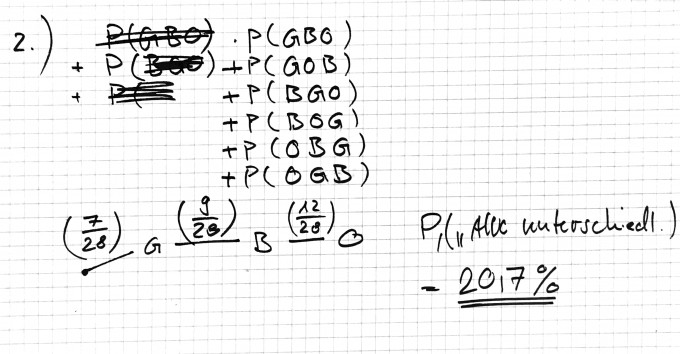 2.) P(GBO) · P(GBO)
+ P(BGO) + P(GOB)
+ P( + P(BGO)
+ P(BOG)
+ P(OBG)
+ P(OGB)
(7/28) G (9/28) B (12/28) O
P("Alle unterschiedl.)
= 20,7%